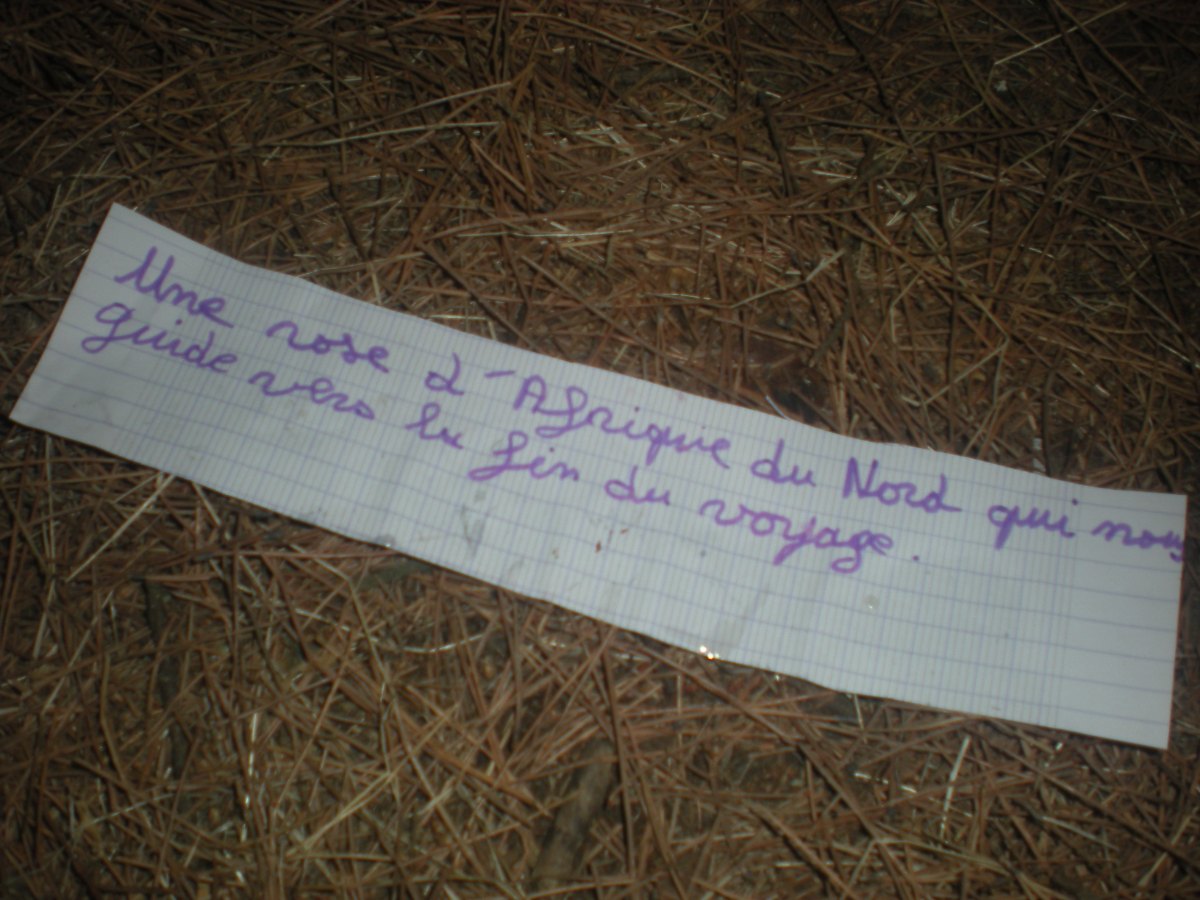 Une rose d'Afrique du Nord qui nous
guide vers la fin du voyage.